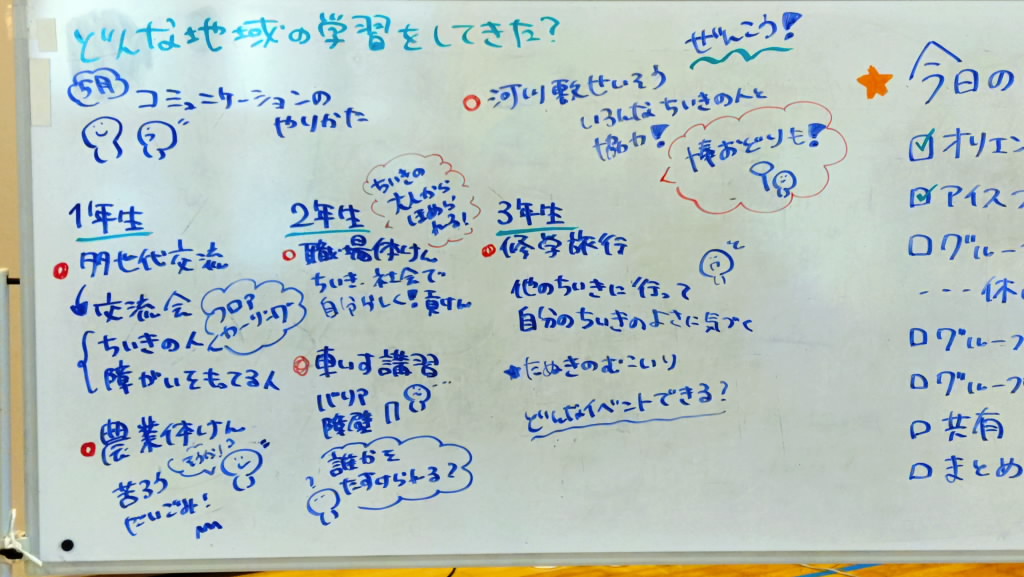 どんな地域の学習をしてきた?
5月
コミュニケーションの
やりかた
ぜんこう!
河川敷せいそう
いろんなちいきの人と
協力!
棒おどりも!
1年生
多世代交流
交流会
フロア
カーリング
ちいきの人
障がいをもてる人
農業体けん
そうか!?
苦ろう
だいごみ!
2年生
ちいきの
大人から
ほめら
れる!
職場体けん
ちいき・社会で
自分らしく!貢けん
車いす講習
バリア
障壁
誰かを
たすけられる?
3年生
修学旅行
他のちいきに行って
自分のちいきのよさに気づく
★たぬきのむこいり
どんなイベントできる?
★今日の
オリエン
アイス
グルー
・・・休
グループ
グループ
共有
まとめ